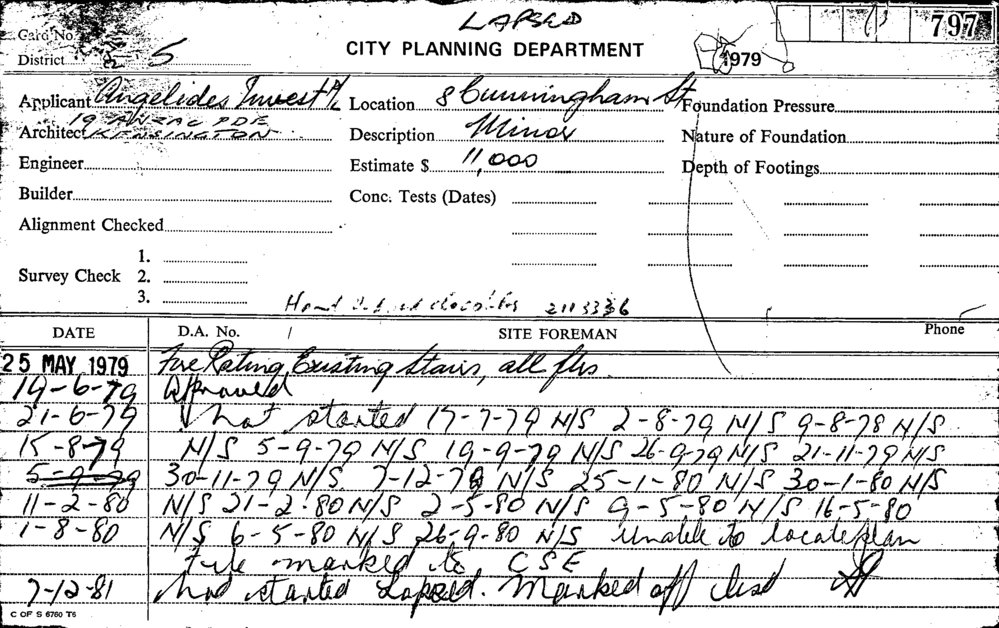 LAPSED
Card No. 797
District 5 CITY PLANNING DEPARTMENT 1979
Applicant Angelides Invest P/L Location 8 Cunningham St Foundation Pressure
19 ANZAC PDE
Architect KENSINGTON Description Minor Nature of Foundation
Engineer Estimate $ 11,000 Depth of Footings
Builder Conc. Tests (Dates)
Alignment Checked
1.
Survey Check 2.
3.
2113336
DATE D.A. No. SITE FOREMAN Phone
25 MAY 1979 Fire Rating Existing Stairs, all flrs.
19-6-79 Approved
21-6-79 not started 17-7-79 N/S 2-8-79 N/S 9-8-78 N/S
15-8-79 N/S 5-9-79 N/S 19-9-79 N/S 26-9-79 N/S 21-11-79 N/S
5-9-79 30-11-79 N/S 7-12-79 N/S 25-1-80 N/S 30-1-80 N/S
11-2-80 N/S 21-2-80 N/S 2-5-80 N/S 9-5-80 N/S 16-5-80
1-8-80 N/S 6-5-80 N/S 26-9-80 N/S Unable to locate plan
File marked to CSE
7-12-81 Not started Lapsed. Marked off
C OF S 6760 T6